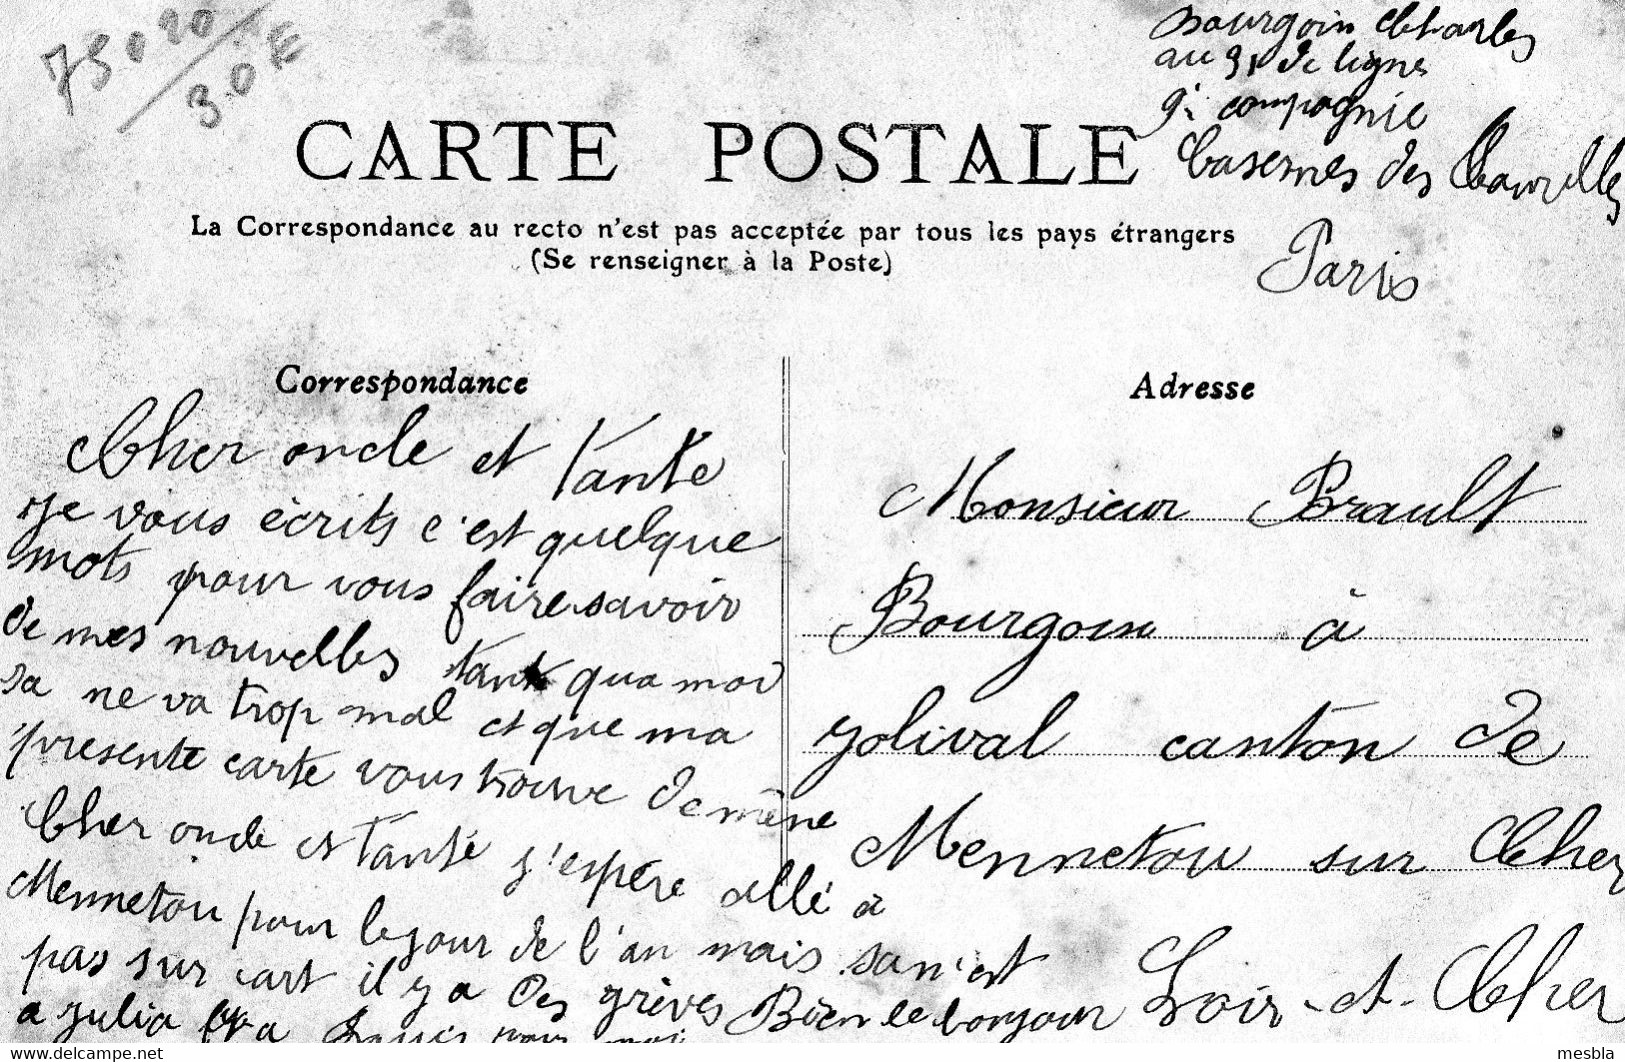 75020
30€
Bourgoin Charles
au 31 de ligne
9e compagnie
Casernes des
Paris
CARTE POSTALE
La Correspondance au recto n'est pas acceptée par tous les pays étrangers
(Se renseigner à la Poste)
Correspondance
Cher oncle et Tante
Je vous écrits c'est quelque
mots pour vous faire savoir
de mes nouvelles tant qua moi
sa ne va trop mal et que ma
presente carte vous trouve de même
Cher oncle et Tante j'espére allé a
Mennetou pour le jour de l'an mais san'est
pas sur cart il y a des grèves Bien le bonjour
a Julia et a Louis pour moi
Adresse
Monsieur Brault
Bourgoin à
Jolival canton de
Mennetou sur Cher
Loir-et-Cher
mesbla